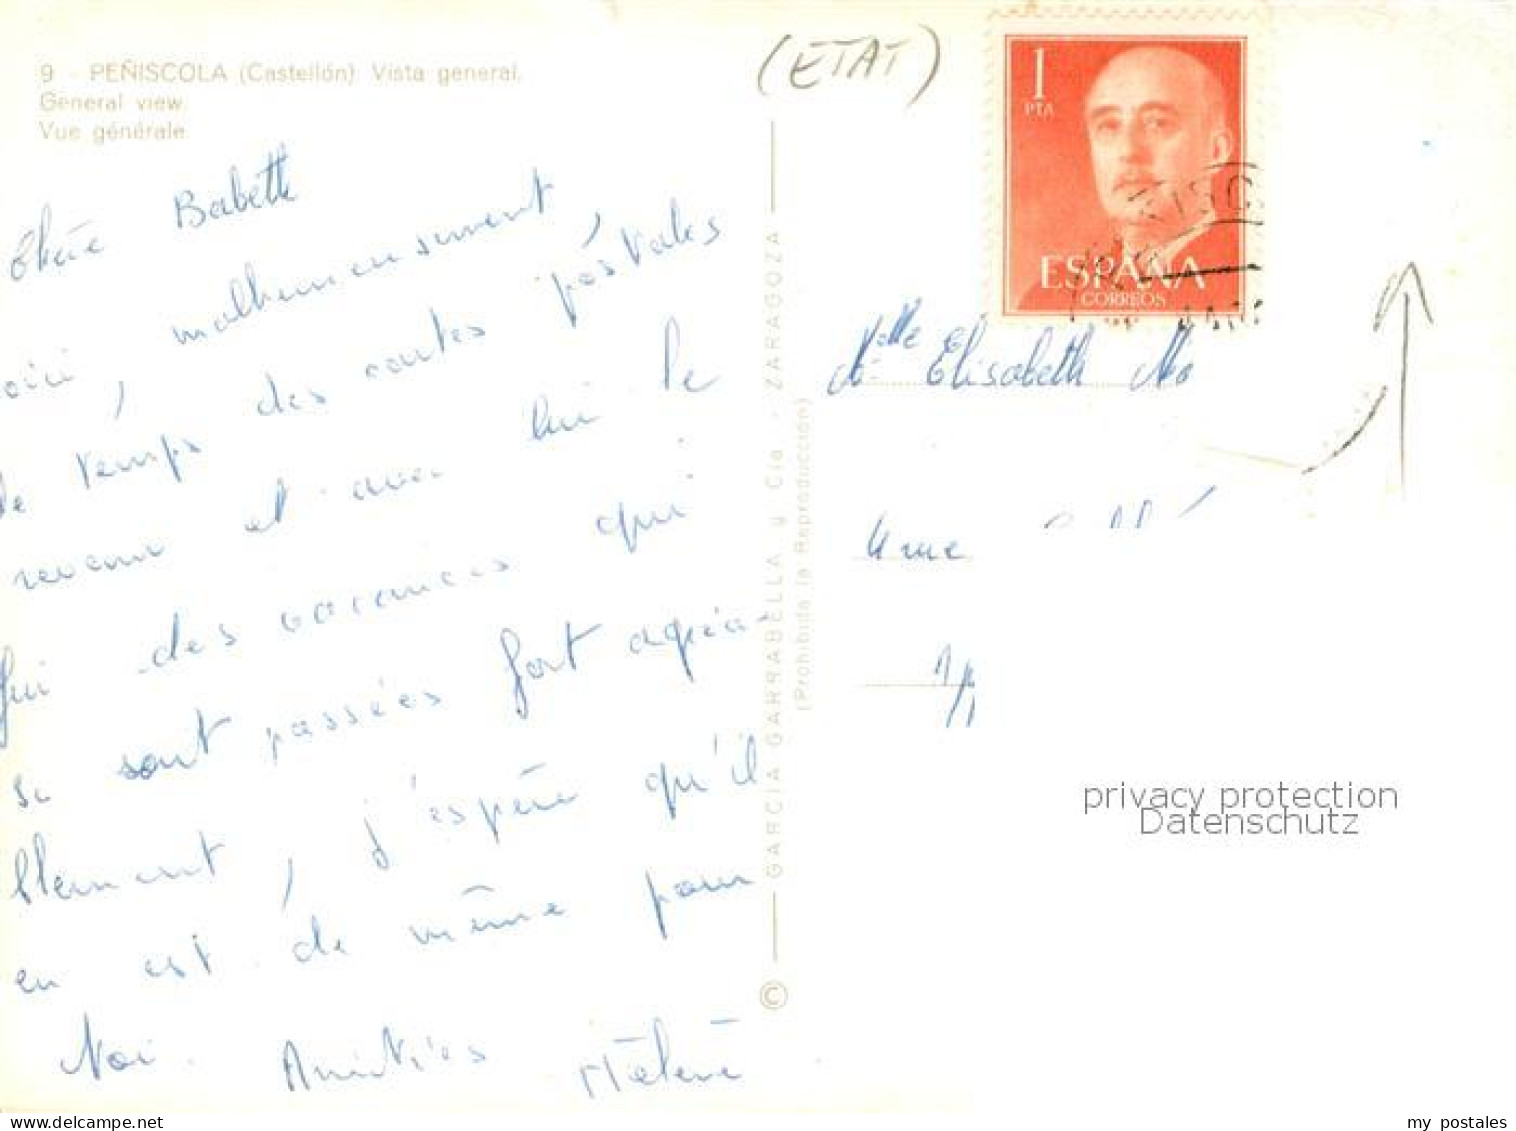 9 - PEÑISCOLA (Castellón) Vista general.
General view.
Vue générale.
Chère Babeth
voici, malheureusement
le temps des cartes postales
revenu et avec lui le
qui des vacances qui
se sont passées fort agréa-
blement, j'espère qu'il
en est de même pour
Toi. Amitiés Hélène
GARCIA GARRABELLA y Cía. - ZARAGOZA
(Prohibida la Reproducción)
©
(ETAT)
1
PTA
ESPAÑA
CORREOS
Melle Elisabeth
privacy protection
Datenschutz
my postales